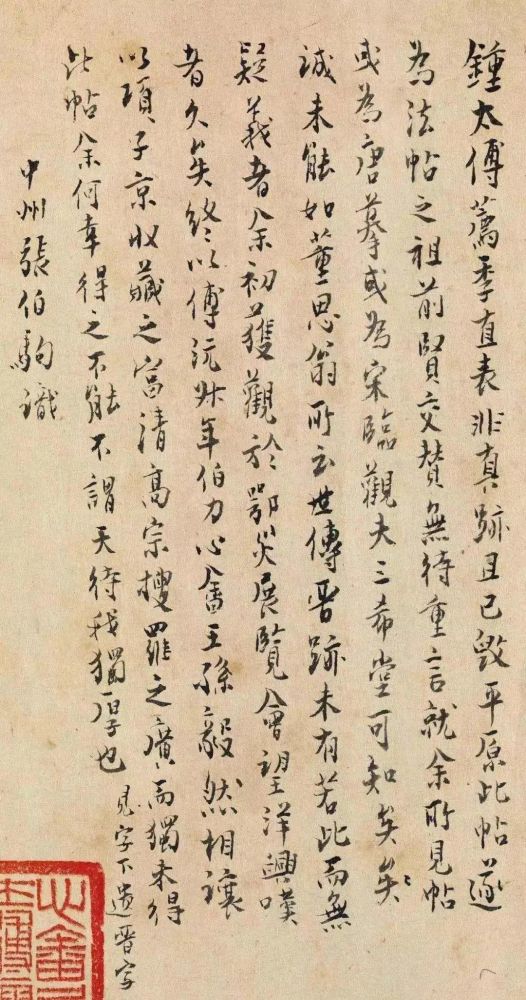 鍾太傅薦季直表非真跡且已毀平原此帖遂
為法帖之祖前賢交贊無待重言就余所見帖
或為唐摹或為宋臨觀夫三希堂可知矣矣〻
誠未能如董思翁所云世傳晉跡未有若此而無
疑義者余初獲觀於鄂災展覽會望洋興嘆
者久矣終以傅沅叔年伯力心畬王孫毅然相讓
以項子京收藏之富清高宗搜羅之廣而獨未得
此帖余何幸得之不能不謂天待我獨厚也 見字下遺晉字
中州張伯駒識